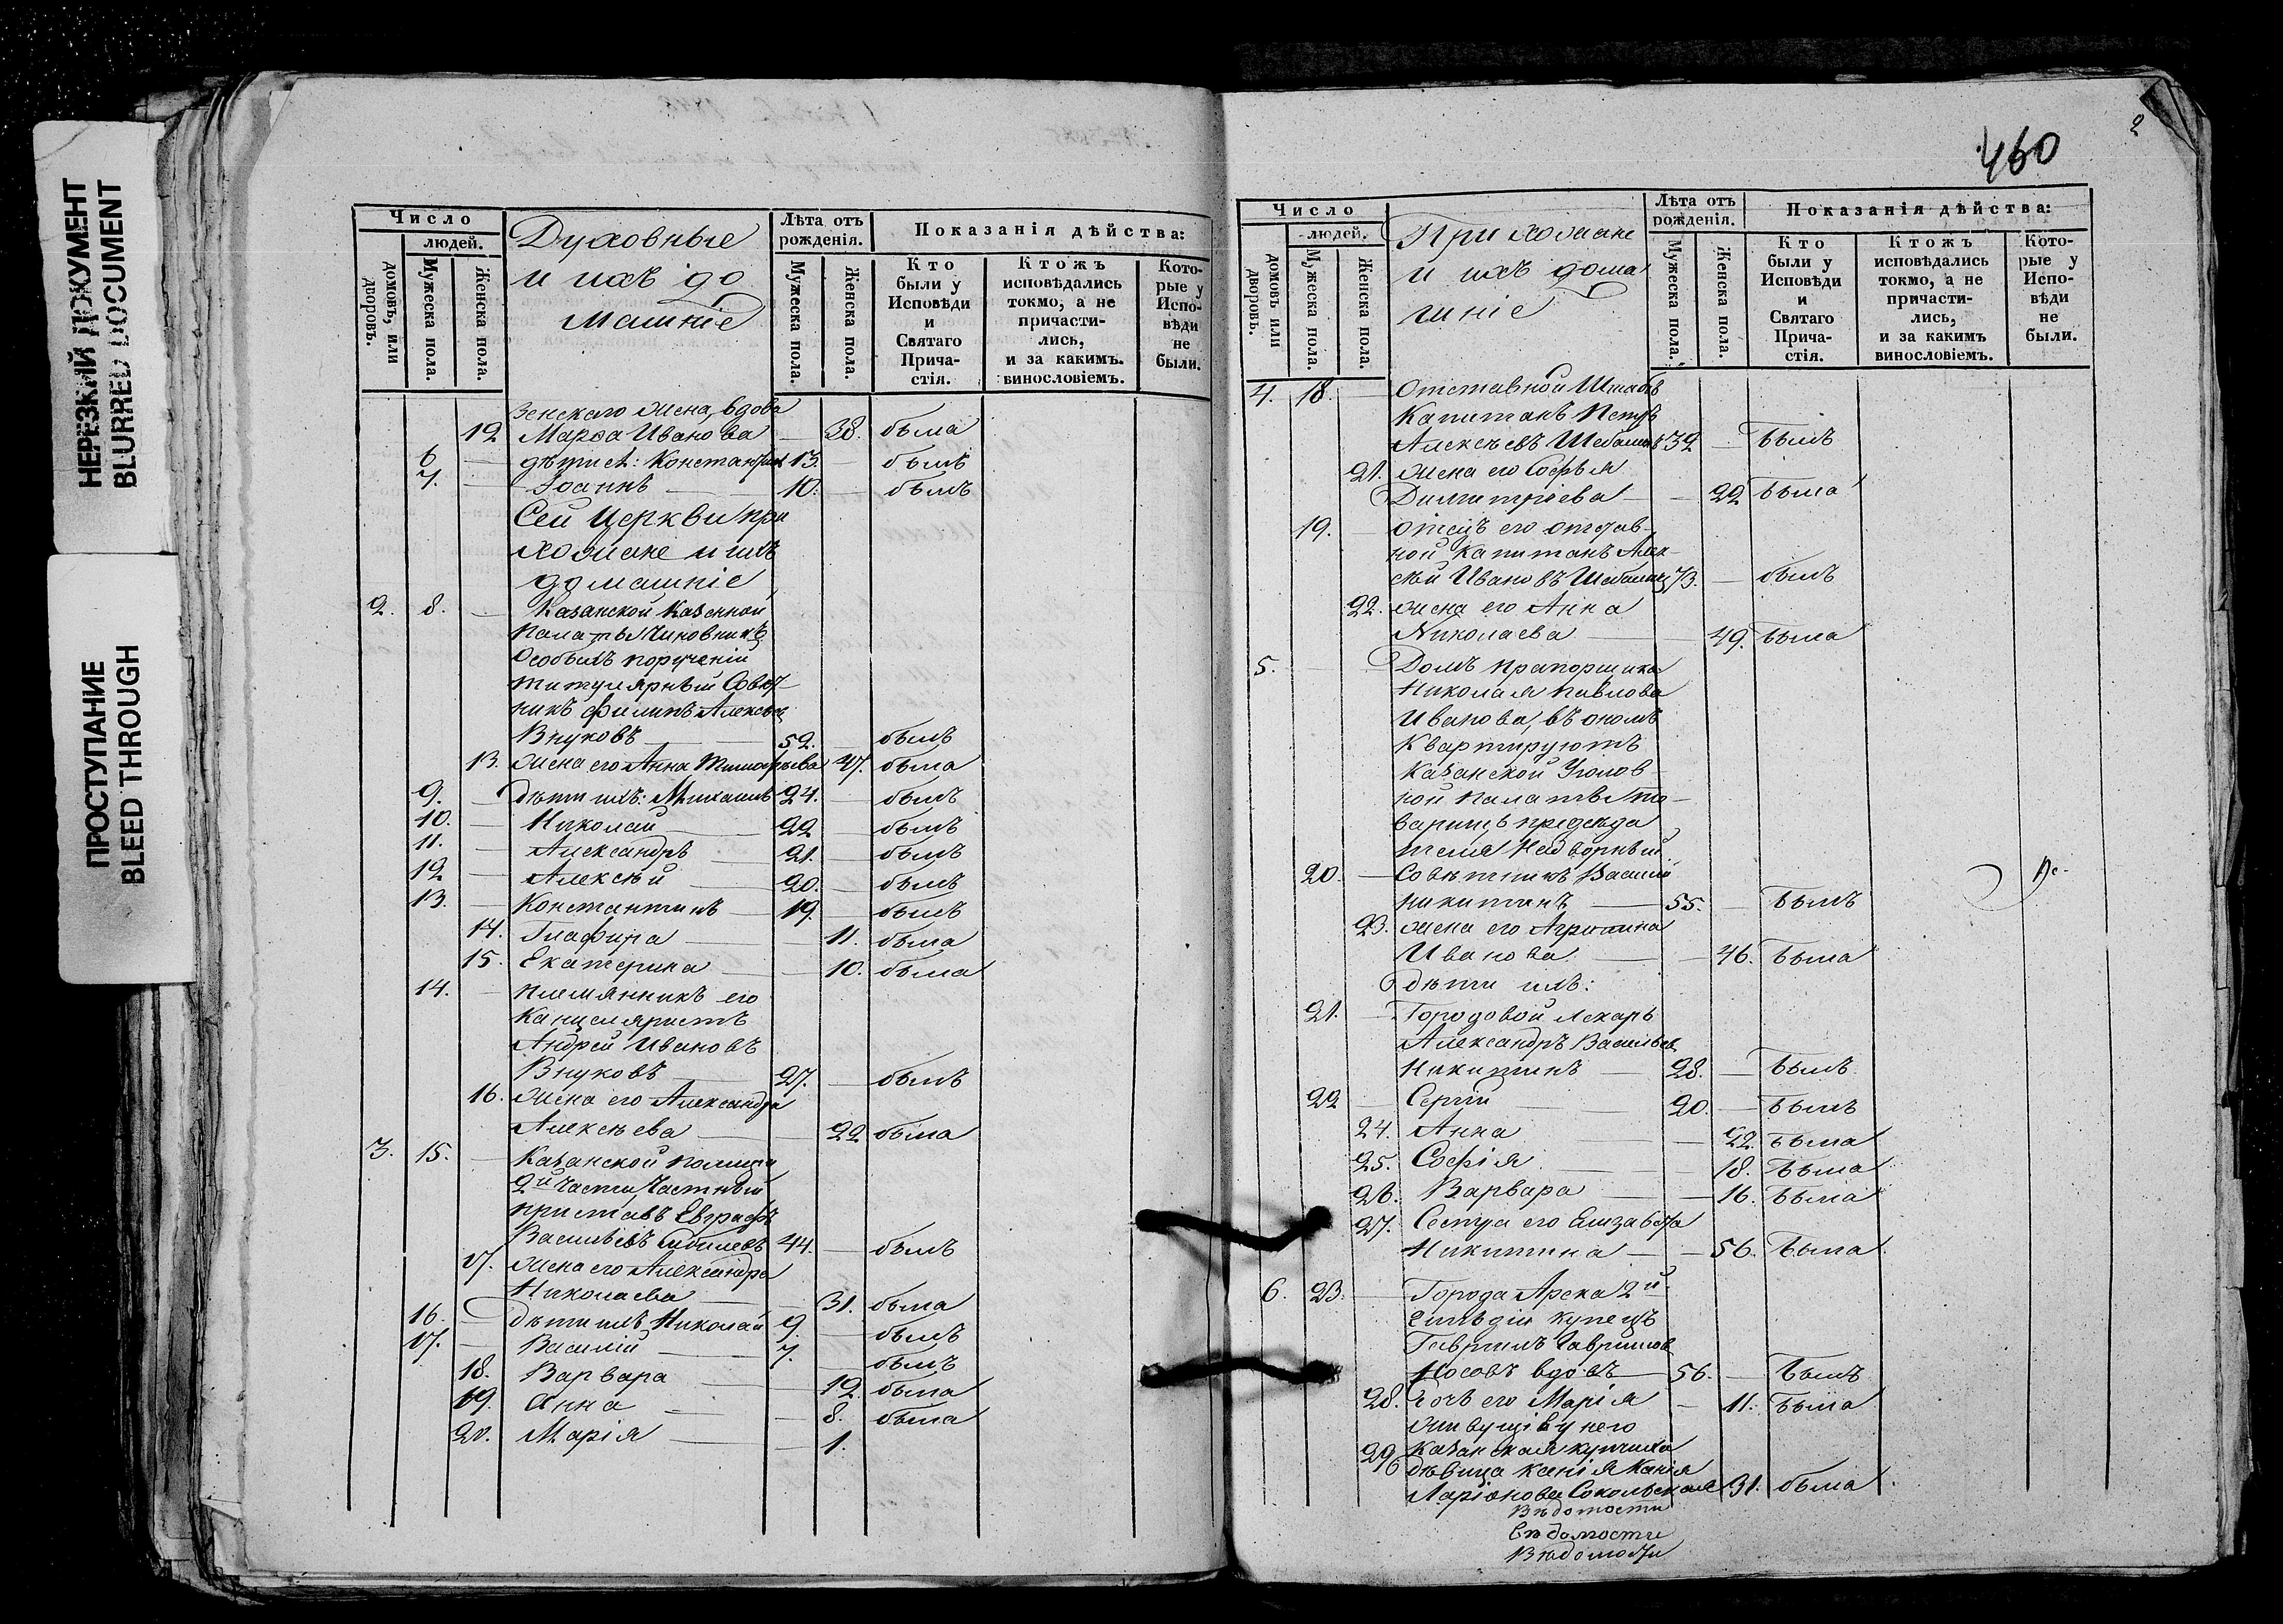 НЕРЕЗКИЙ ДОКУМЕНТ
BLURRED DOCUMENT
ПРОСТУПАНИЕ
BLEED THROUGH
Число
людей.
домовъ, или дворовъ.
Мужеска пола.
Женска пола.
Духовные
и ихъ до
машніе
Лѣта отъ рожденія.
Мужеска пола.
Женска пола.
Показанія дѣйства:
Кто были у Исповѣди и Святаго Прича- стія.
Ктожъ исповѣдались токмо, а не причасти- лись, и за какимъ. винословіемъ.
Кото- рые у Испо- вѣди не были.
жена, вдова
12 Марѳа Иванова — 38. была
6 — дѣти ея: Константинъ 13. — былъ
7. — Іоаннъ — 10. — былъ
Сей Церкви при
хожане и ихъ
домашніе
2. 8. — Казанской Казенной
Палаты Чиновникъ
Особыхъ порученій
титулярный Совѣт-
никъ Филипъ Алексѣев
Внуковъ — 52. — былъ
13. жена его Анна 47. была
9. — Дѣти ихъ: Михаилъ 24. — былъ
10. — Николай — 22 — былъ
11. — Александръ — 21. — былъ
12 — Алексѣй — 20. — былъ
13. — Константинъ — 19. — былъ
14. Глафира — 11. была
15. Екатерина — 10. была
14. — племянникъ его
Канцеляристъ
Андрей Ивановъ
Внуковъ — 27. — былъ
16. жена его Александра
Алексѣева — 22 была
3. 15. — Казанской полиціи
2й Части Частный
приставъ Евграфъ
Васильевъ 44. — былъ
17. жена его Александра
Николаева — 31. была
16. — Дѣти ихъ Николай 9. — былъ
17. — Василій — 7. — былъ
18. Варвара — 12. была
19. Анна — 8. была
20. Марія — 1.
460
2
Число
людей.
домовъ или дворовъ.
Мужеска пола.
Женска пола.
Прихожане
и ихъ дома
шніе
Лѣта отъ рожденія.
Мужеска пола.
Женска пола.
Показанія дѣйства:
Кто были у Исповѣди и Святаго Прича- стія.
Ктожъ исповѣдались токмо, а не причасти- лись, и за какимъ винословіемъ.
Кото- рые у Испо- вѣди не были.
4. 18. — Отставной Штабсъ
Капитанъ Петръ
Алексѣевъ 39 — былъ
21. жена его Софья
Димитріева — 22 была
19. — отецъ его отстав-
ной Капитанъ Алек-
сѣй Ивановъ 73. — былъ
22. жена его Анна
Николаева — 49. была
5. Домъ прапорщика
Николая Павлова
Иванова, въ ономъ
Квартируютъ
Казанской Уголов-
ной палаты то-
варищъ предсѣда
теля Надворный
20. — Совѣтникъ Василій
Никитинъ — 55. — былъ
23. жена его Агрипина
Иванова — 46. была
дѣти ихъ:
21. — Городовой лекарь
Александръ Васильев
Никитинъ — 28. — былъ
22 — Сергій — 20. — былъ
24. Анна — 22. была
25. Софія — 18. была
26. Варвара — 16. была
27. Сестра его Елизавета
Никитина — 56. была
6. 23. — Города Арска 2й
гильдіи купецъ
Гаврилъ Гавриловъ
Носовъ вдовъ — 56. — былъ
28. дочь его Марія — 11. была
живущія у него
29 Казанская купчиха
дѣвица Ксенія
Ларіонова Сокольская 31. была
Вѣдомости
Вѣдомости
Вѣдомости